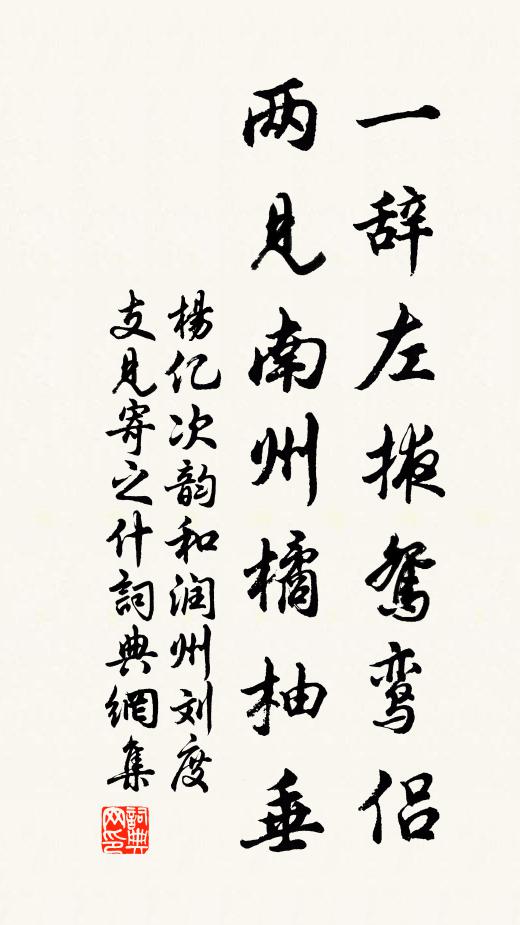 一辞左掖鸳鸾侣
两见南州橘柚垂
楊亿次韵和润州刘度
支見寄之什詞典網集
詞典
网印